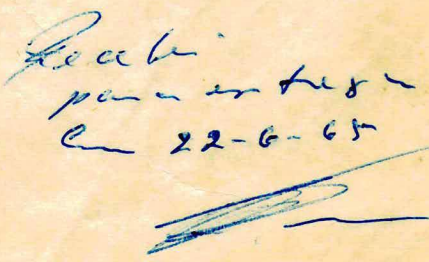 Recibi
para entrega
En 22-6-65